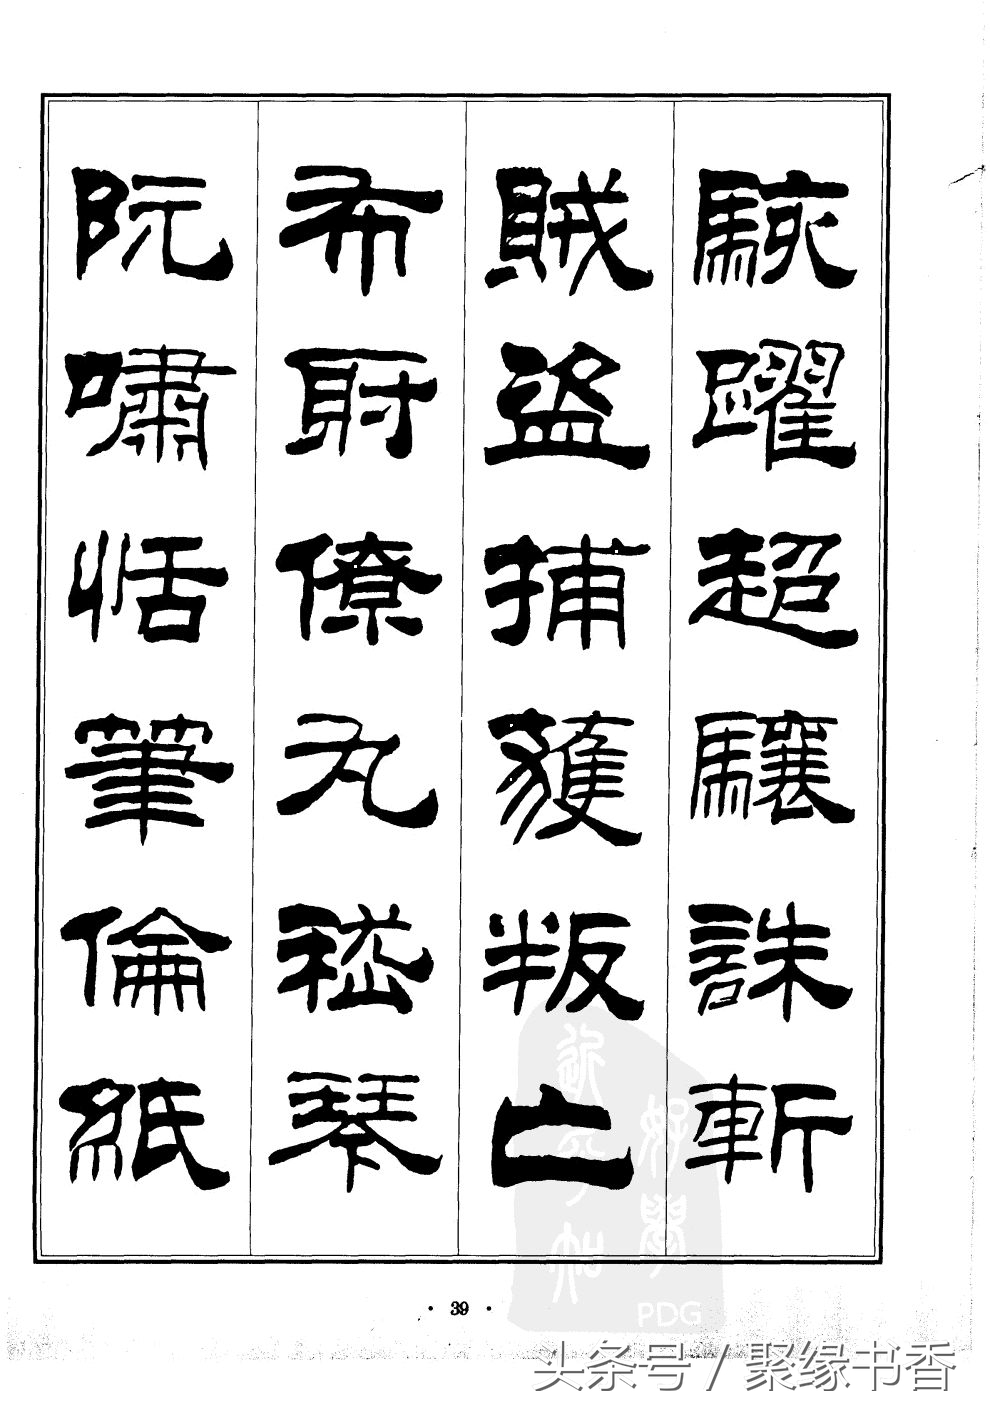 駭躍超驤誅斬
賊盜捕獲叛亡
布射僚丸嵇琴
阮嘯恬筆倫紙
· 39 ·
好學
PDG
头条号 / 聚缘书香